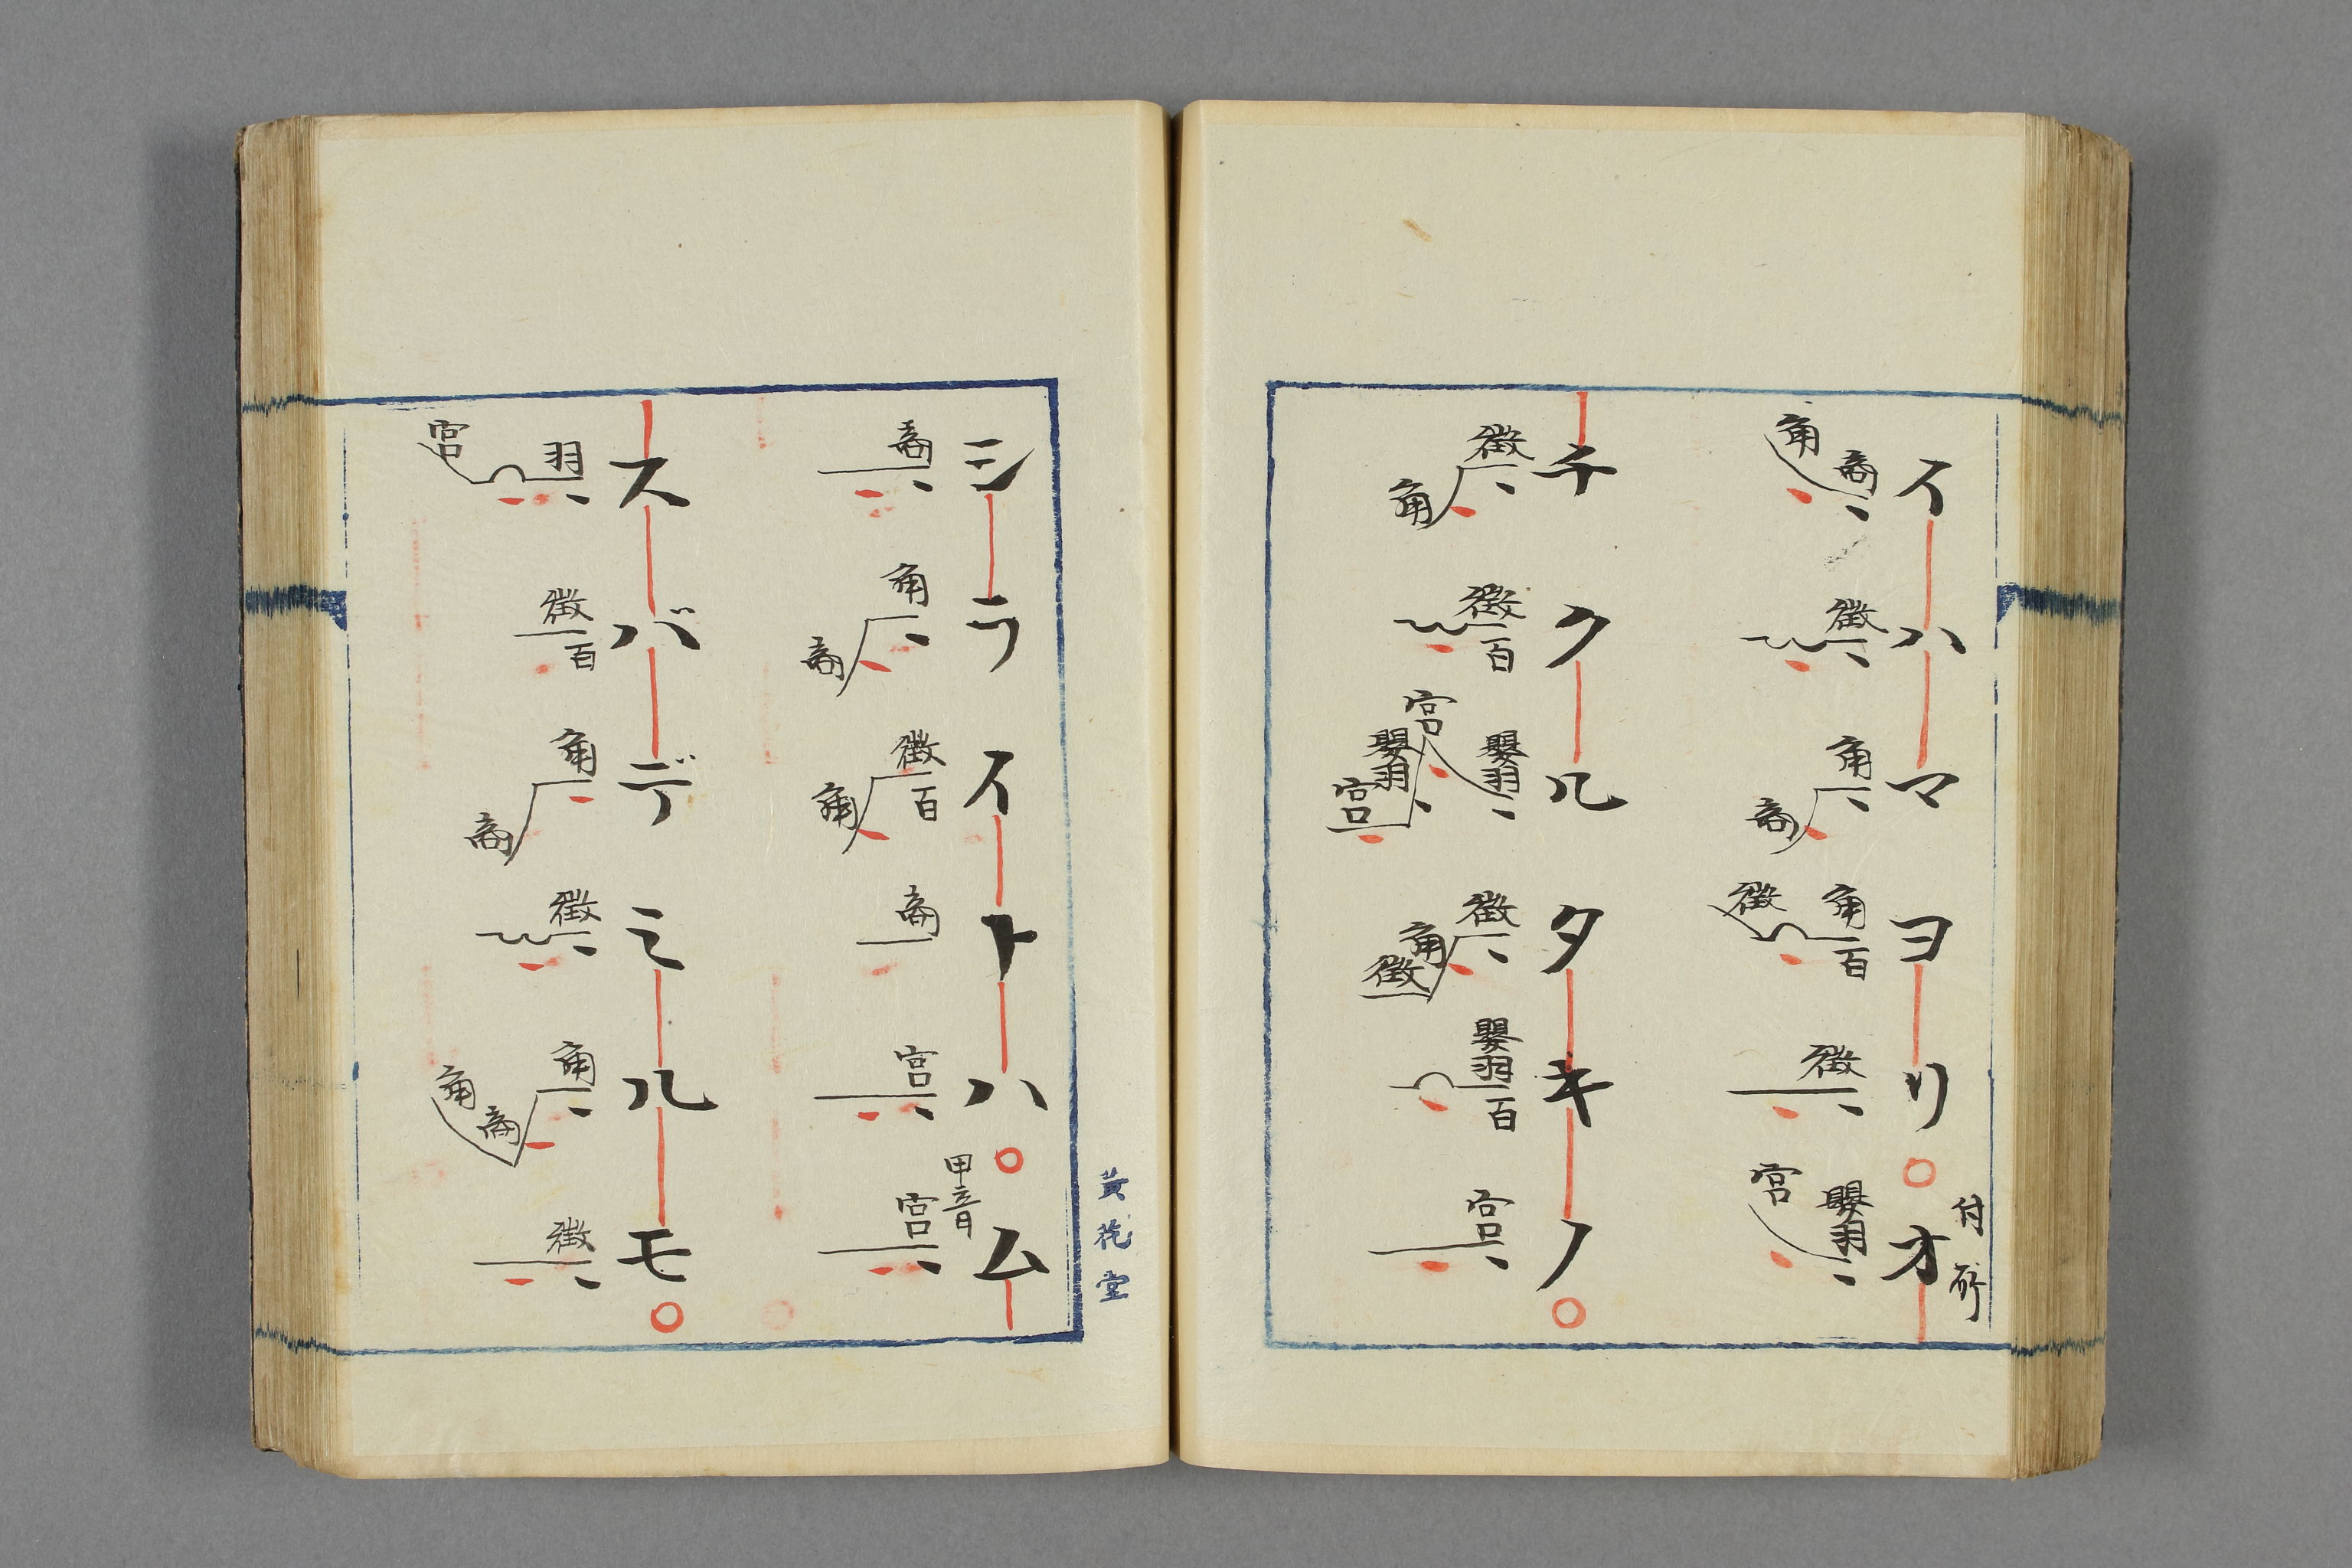 付所
イハマヨリ○オ
商角 徴 角商 角百徴 徴 嬰羽宮
チクルタキノ○
徴角 徴百 嬰羽宮嬰羽宮 徴角徴 嬰羽百 宮
黄花堂
シライトハ○ム
甲音
商 角商 徴百角 商 宮 宮
スバデミルモ○
羽宮 徴百 角商 徴 角商角 徴